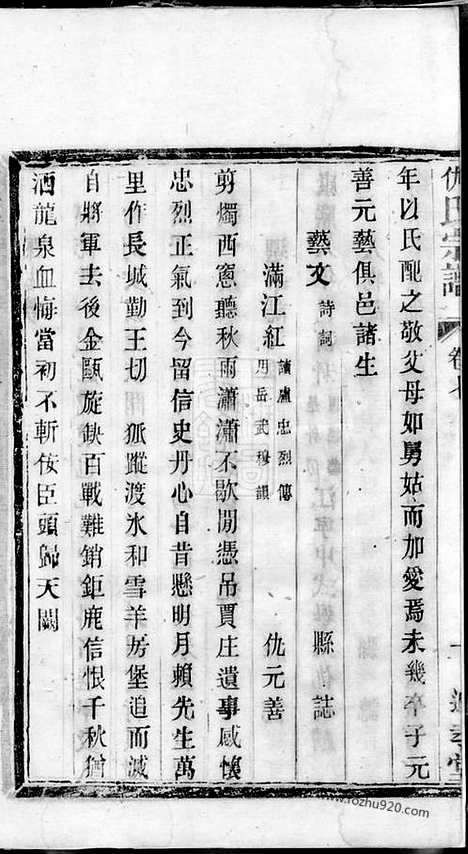 仇氏宗譜 卷七
年以氏配之敬父母如舅姑而加愛焉未幾卒子元
善元藝俱邑諸生
藝文 詩詞 縣誌
滿江紅 讀盧忠烈傳 用岳武穆韻 仇元善
剪燭西窻聽秋雨瀟瀟不歇閒憑吊賈庄遺事感懷
忠烈正氣到今留信史丹心自昔懸明月賴先生萬
里作長城勤王切 狐蹤渡氷和雪羊房堡追而滅
自將軍去後金甌旋鈌百戰難銷鉅鹿信恨千秋猶
洒龍泉血悔當初不斬佞臣頭歸天闕
www.fozhu920.com